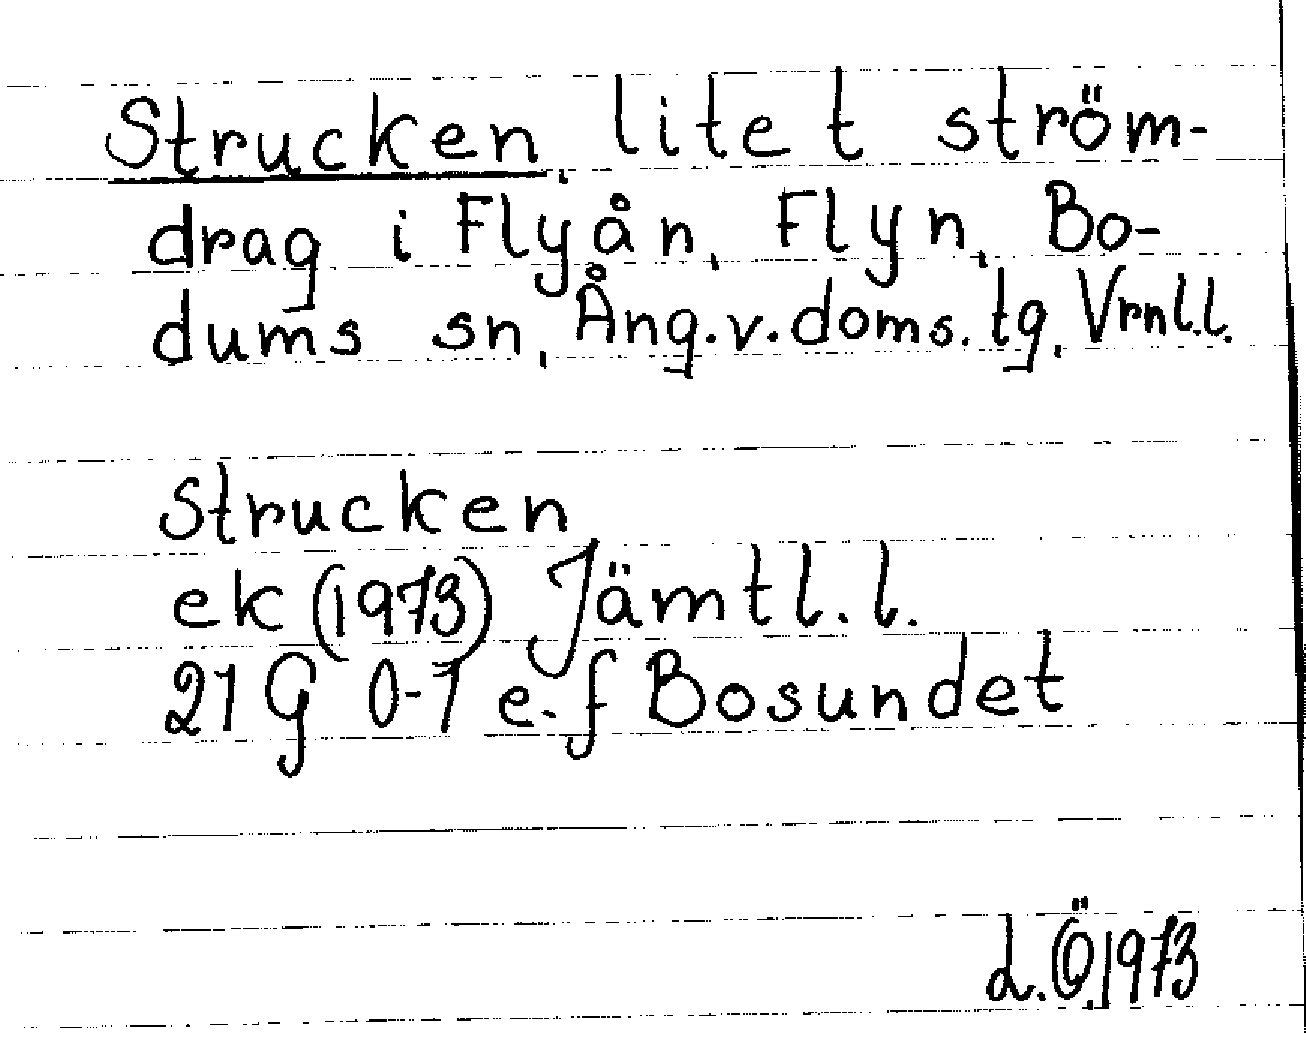 Strucken, litet ström-
drag i Flyån, Flyn, Bo-
dums sn, Ång.v.doms.tg, Vrnl.l.
Strucken
ek (1973) Jämtl.l.
21 G 0-1 e-f Bosundet
L.Ö.1973